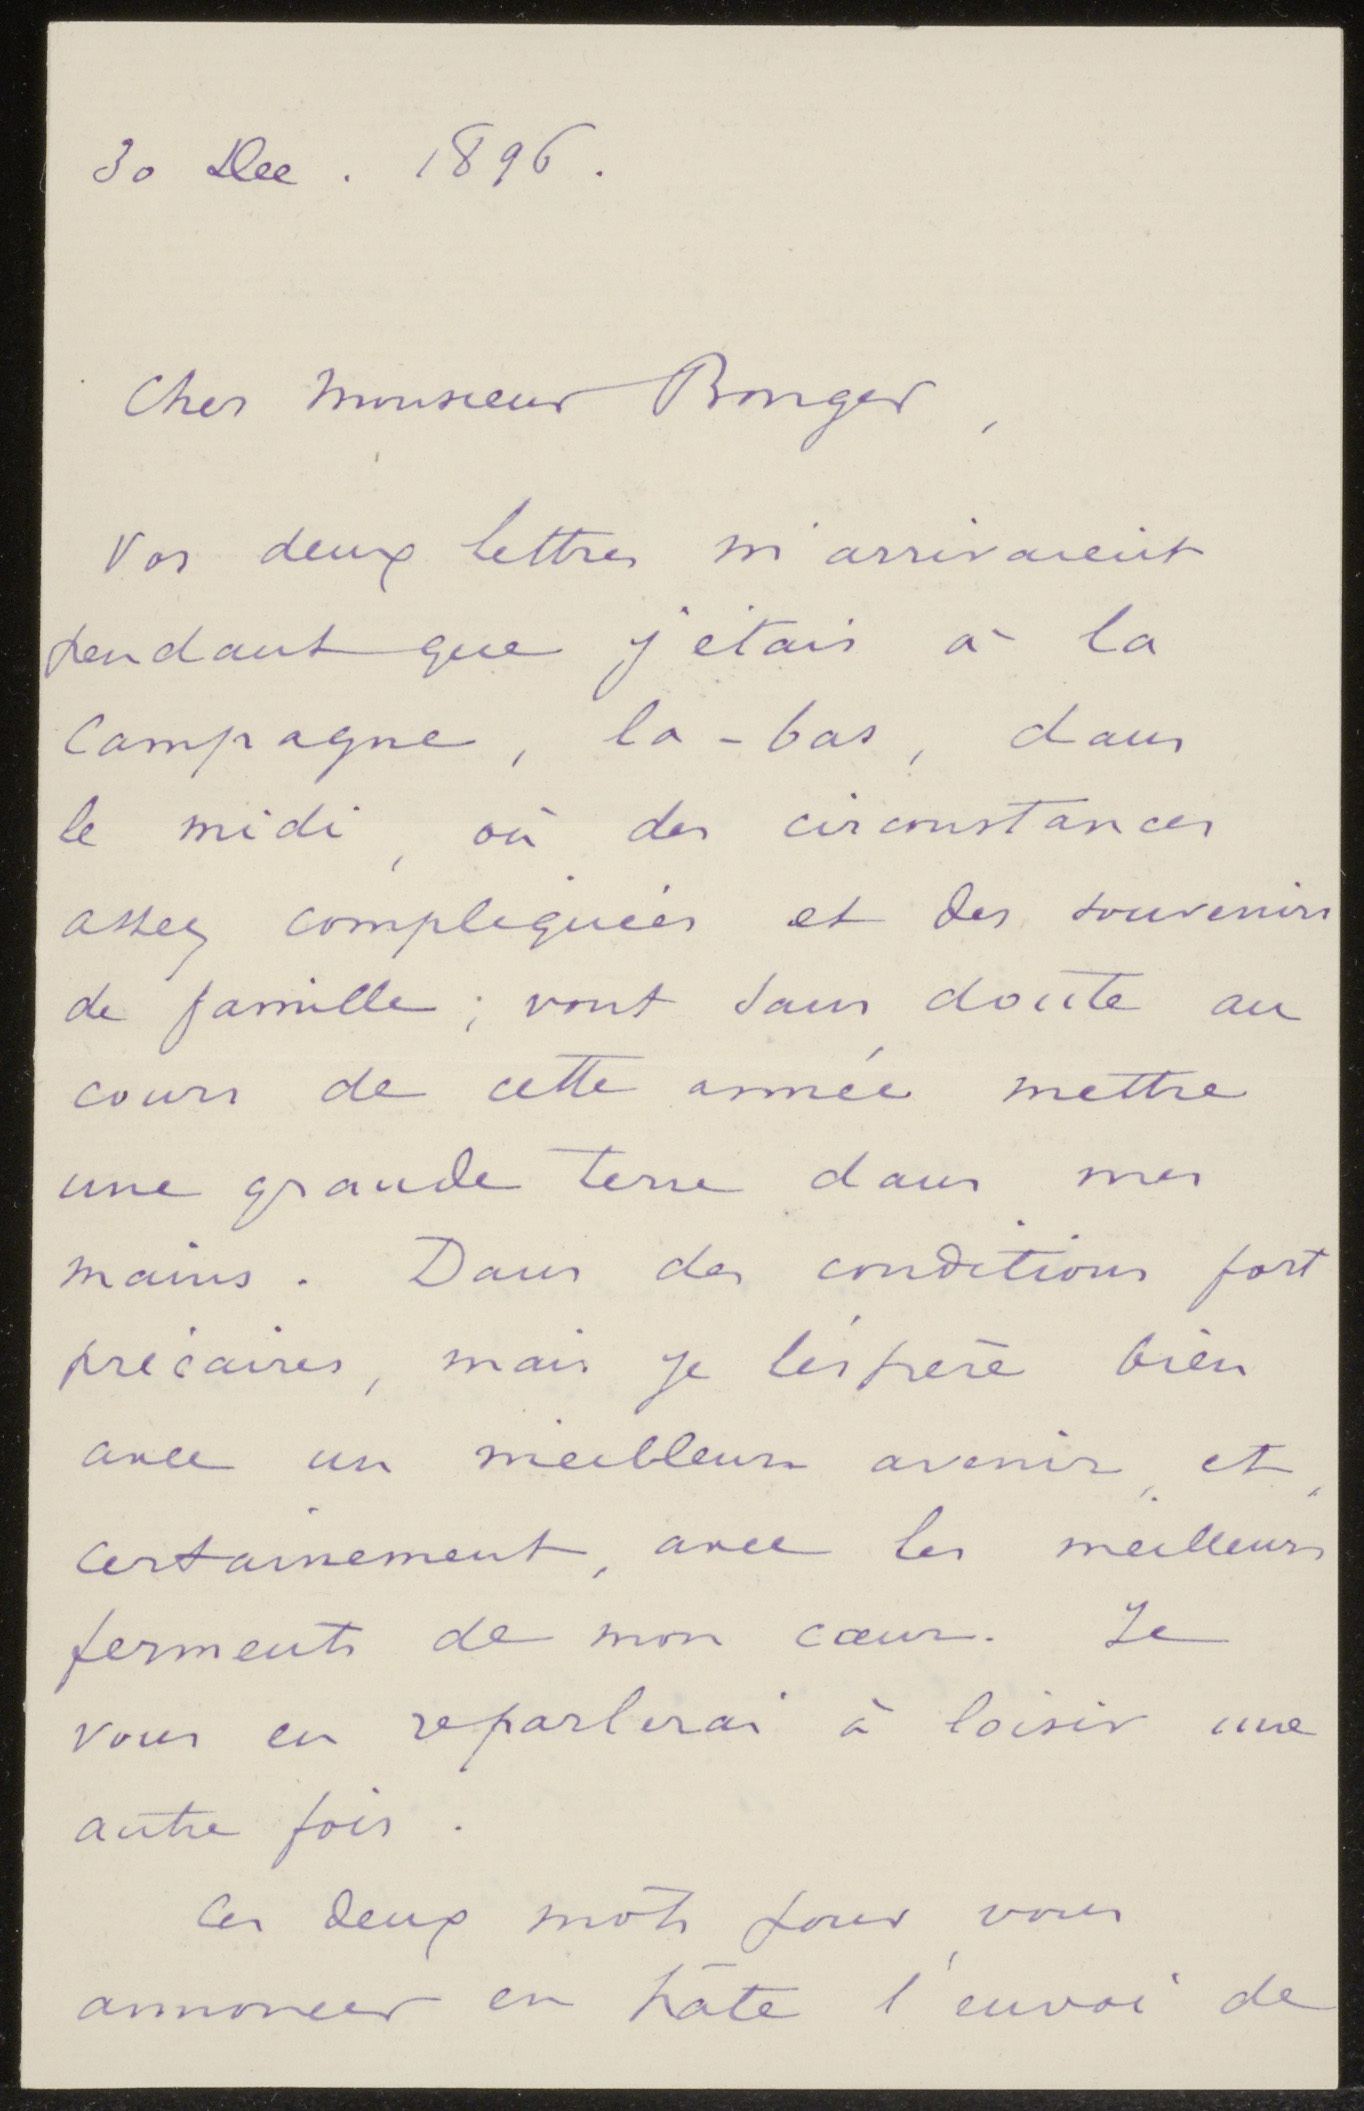 30 Dec. 1896.
Cher Monsieur Bonger,
Vos deux lettres m'arrivaient
pendant que j'étais à la
campagne, là-bas, dans
le midi, où des circonstances
assez compliquées et des souvenirs
de famille; vont sans doute au
cours de cette année mettre
une grande terre dans mes
mains. Dans des conditions fort
précaires, mais je l'espère bien
avec un meilleur avenir, et,
certainement, avec les meilleurs
ferments de mon cœur. Je
vous en reparlerai à loisir une
autre fois.
Ces deux mots pour vous
annoncer en hâte l'envoi de